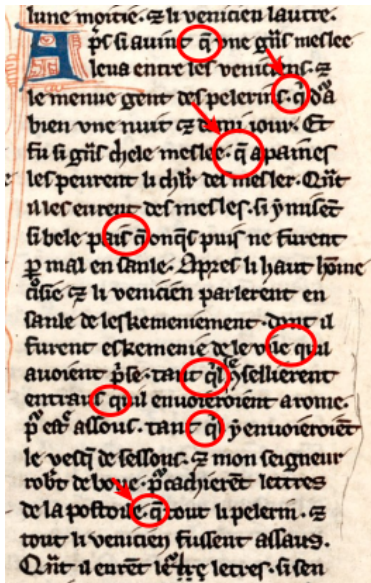 lune moitie. ⁊ li venicien lautre.
Ap̄s si auint q̄ vne gn̄s meslee
leua entre les veniciens. ⁊
le menue gent des pelerins. q̄ dā
bien vne nuit ⁊ demi iour. Et
fu si gn̄s chele meslee. q̄ a paines
les peurent li chl̄r desmesler. Qn̄t
il les eurent desmesles. si ẏ misēt
si bele pais q̄ onqs puis ne furent
ꝑ mal en sanle. Apres li haut hōme
⁊ li venicien parlerent en
sanle de leskemeniement. dont il
furent eskemenie de le vile quil
auoient p̄se. tant q̄l
entraus quil enuoieroient a rome.
p̄ est̄ assous. tant q̄l ẏ enuoieroiēt
le vesq̄ de sessons. ⁊ mon seigneur
rob̄t de boue. p̄cachierēt lettres
de lapostoile. q̄ tout li pelerin. ⁊
tout li venicien fussent assaus.
Qn̄t il eurēt letres. si sen